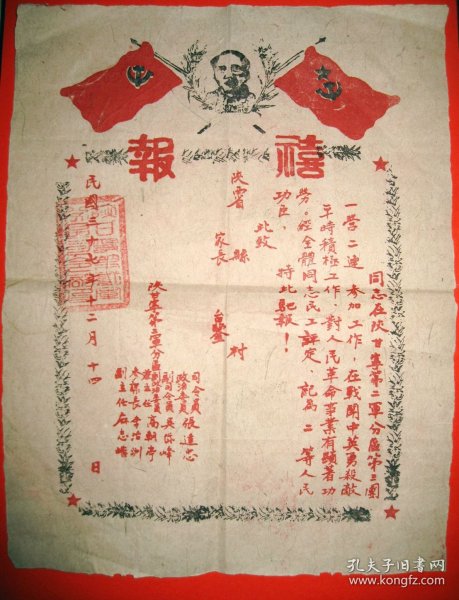 禧報
同志在陝甘寧第二軍分區第三團
一營二連參加工作，在戰鬥中英勇殺敵
平時積極工作，對人民革命事業有顯著功
勞。經全體同志民工評定、記爲二等人民
功臣、特此馳報！
此致
陝西省 縣 村
家長
陝甘寧第二軍分區
司令員
政治委員 張達志
副司令員 吳岱峰
高朝亭
參謀長 李治洲
副主任
民國三十七年十二月十四日
孔夫子旧书网
www.kongfz.com